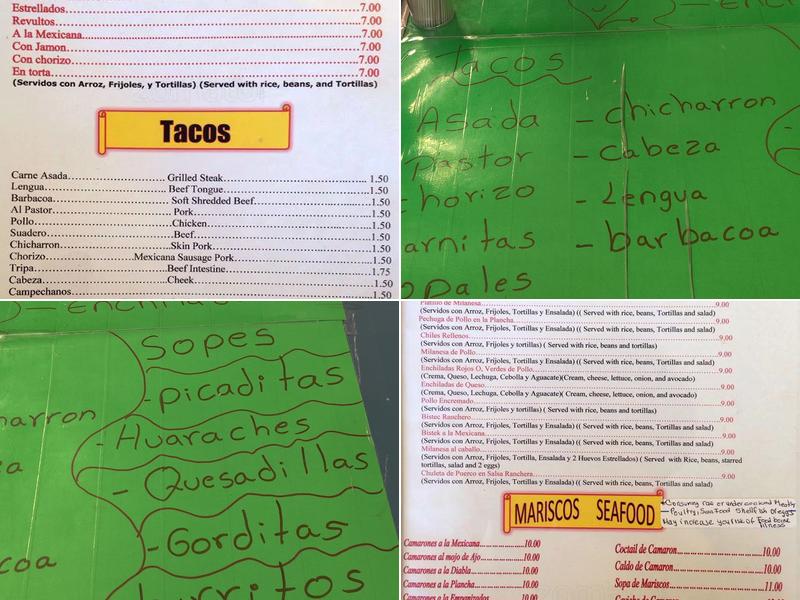 Estrellados 7.00
Revultos 7.00
A la Mexicana 7.00
Con Jamon 7.00
Con chorizo 7.00
En torta 7.00
(Servidos con Arroz, Frijoles, y Tortillas) (Served with rice, beans, and Tortillas)
Tacos
Carne Asada Grilled Steak 1.50
Lengua Beef Tongue 1.50
Barbacoa Soft Shredded Beef 1.50
Al Pastor Pork 1.50
Pollo Chicken 1.50
Suadero Beef 1.50
Chicharron Skin Pork 1.50
Chorizo Mexicana Sausage Pork 1.50
Tripa Beef Intestine 1.75
Cabeza Cheek 1.50
Campechanos 1.50
Tacos
Asada - chicharron
Pastor - Cabeza
horizo - Lengua
arnitas - barbacoa
opales
harron
coa
Sopes
- picaditas
- Huaraches
- Quesadillas
- Gorditas
Platillo de Milanesa 9.00
(Servidos con Arroz, Frijoles, Tortillas y Ensalada) (( Served with rice, beans, Tortillas and salad)
Pechuga de Pollo en la Plancha 9.00
(Servidos con Arroz, Frijoles, Tortillas y Ensalada) (( Served with rice, beans, Tortillas and salad)
Chiles Rellenos 9.00
(Servidos con Arroz, Frijoles, y tortillas) ( Served with rice, beans and tortillas)
Milanesa de Pollo 9.00
(Servidos con Arroz, Frijoles, Tortillas y Ensalada) (( Served with rice, beans, Tortillas and salad)
Enchiladas Rojos O, Verdes de Pollo 9.00
(Crema, Queso, Lechuga, Cebolla y Aguacate)(Cream, cheese, lettuce, onion, and avocado)
Enchiladas de Queso 9.00
(Crema, Queso, Lechuga, Cebolla y Aguacate)( Cream, cheese, lettuce, onion, and avocado)
Pollo Encremado 9.00
(Servidos con Arroz, Frijoles, y tortillas) ( Served with rice, beans and tortillas)
Bistec Ranchero 9.00
(Servidos con Arroz, Frijoles, Tortillas y Ensalada) (( Served with rice, beans, Tortillas and salad)
Bistek a la Mexicana 9.00
(Servidos con Arroz, Frijoles, Tortillas y Ensalada) (( Served with rice, beans, Tortillas and salad)
Milanesa al caballo 9.00
(Servidos con Arroz, Frijoles, Tortilla, Ensalada y 2 Huevos Estrellados) ( Served with Rice, beans, starred
tortillas, salad and 2 eggs)
Chuleta de Puerco en Salsa Ranchera 9.00
(Servidos con Arroz, Frijoles, Tortillas y Ensalada) (( Served with rice, beans, Tortillas and salad)
MARISCOS SEAFOOD
Consuming raw or undercooked
Poultry, SeaFood Shellfish Or eggs
May increase you risk of Food borne
illness
Camarones a la Mexicana 10.00
Camarones al mojo de Ajo 10.00
Camarones a la Diabla 10.00
Camarones a la Plancha 10.00
Camarones a la Empanizados 10.00
Coctail de Camaron 10.00
Caldo de Camaron 10.00
Sopa de Mariscos 11.00